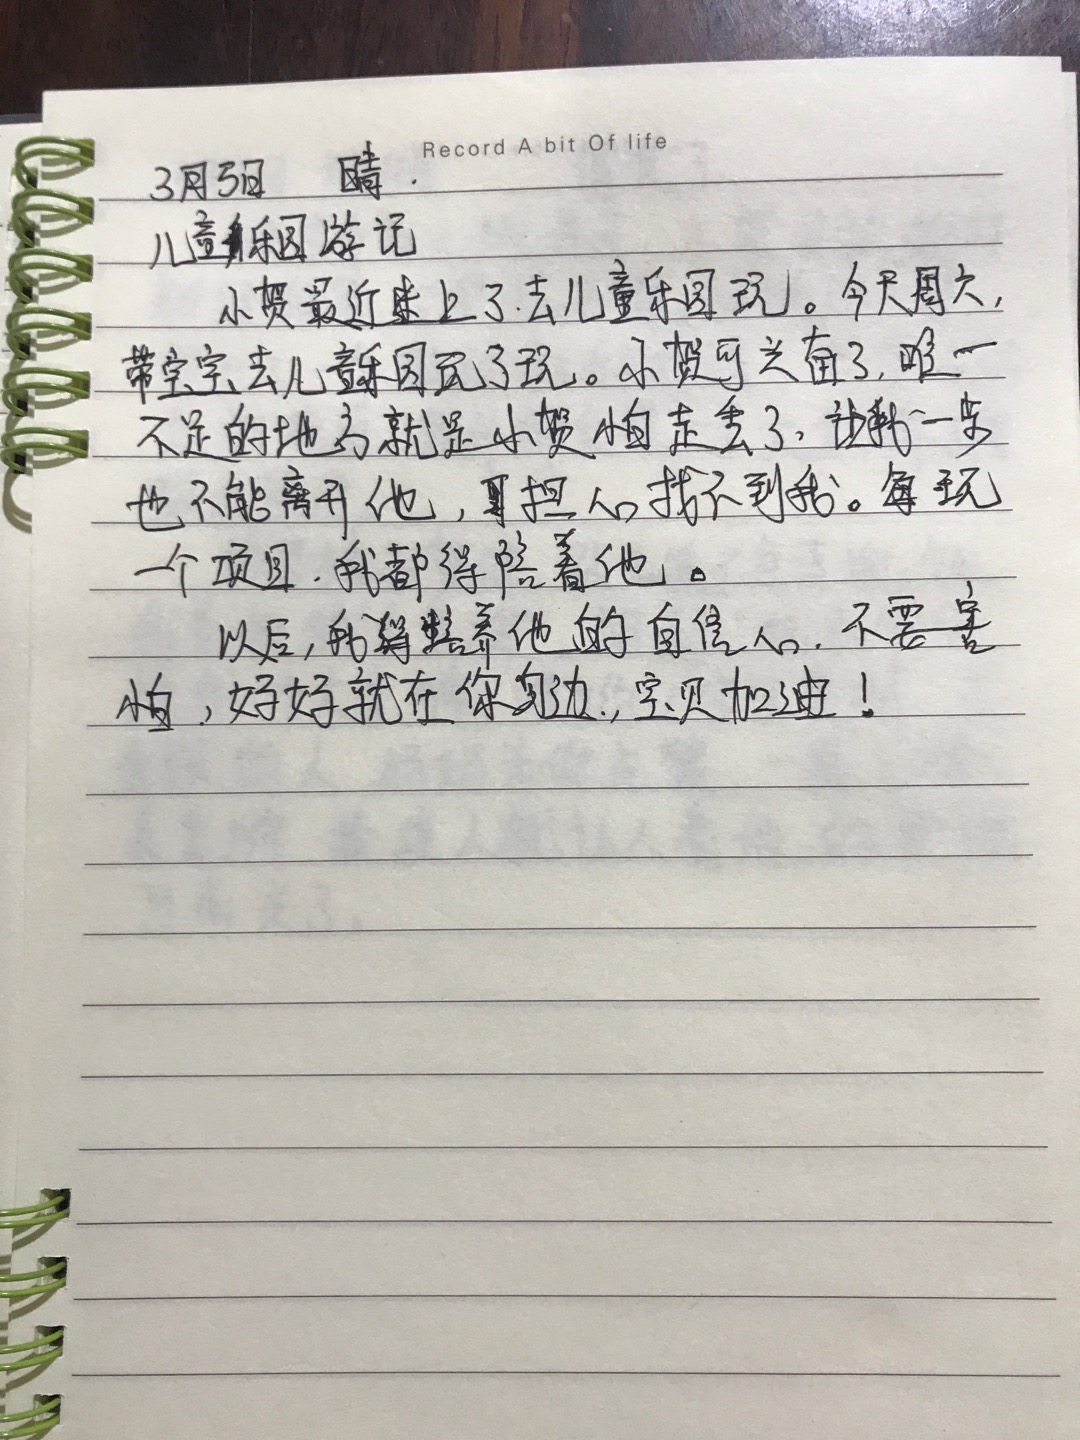 Record A bit Of life
3月5日 晴.
儿童乐园游记
小贺最近迷上了去儿童乐园玩。今天周六,
带宝宝去儿童乐园玩了玩。小贺可兴奋了,唯一
不足的地方就是小贺怕走丢了,让我一步
也不能离开他,担心找不到我。每玩
一个项目,我都得陪着他。
以后,我得培养他的自信心,不要害
怕,好好就在你身边,宝贝加油!